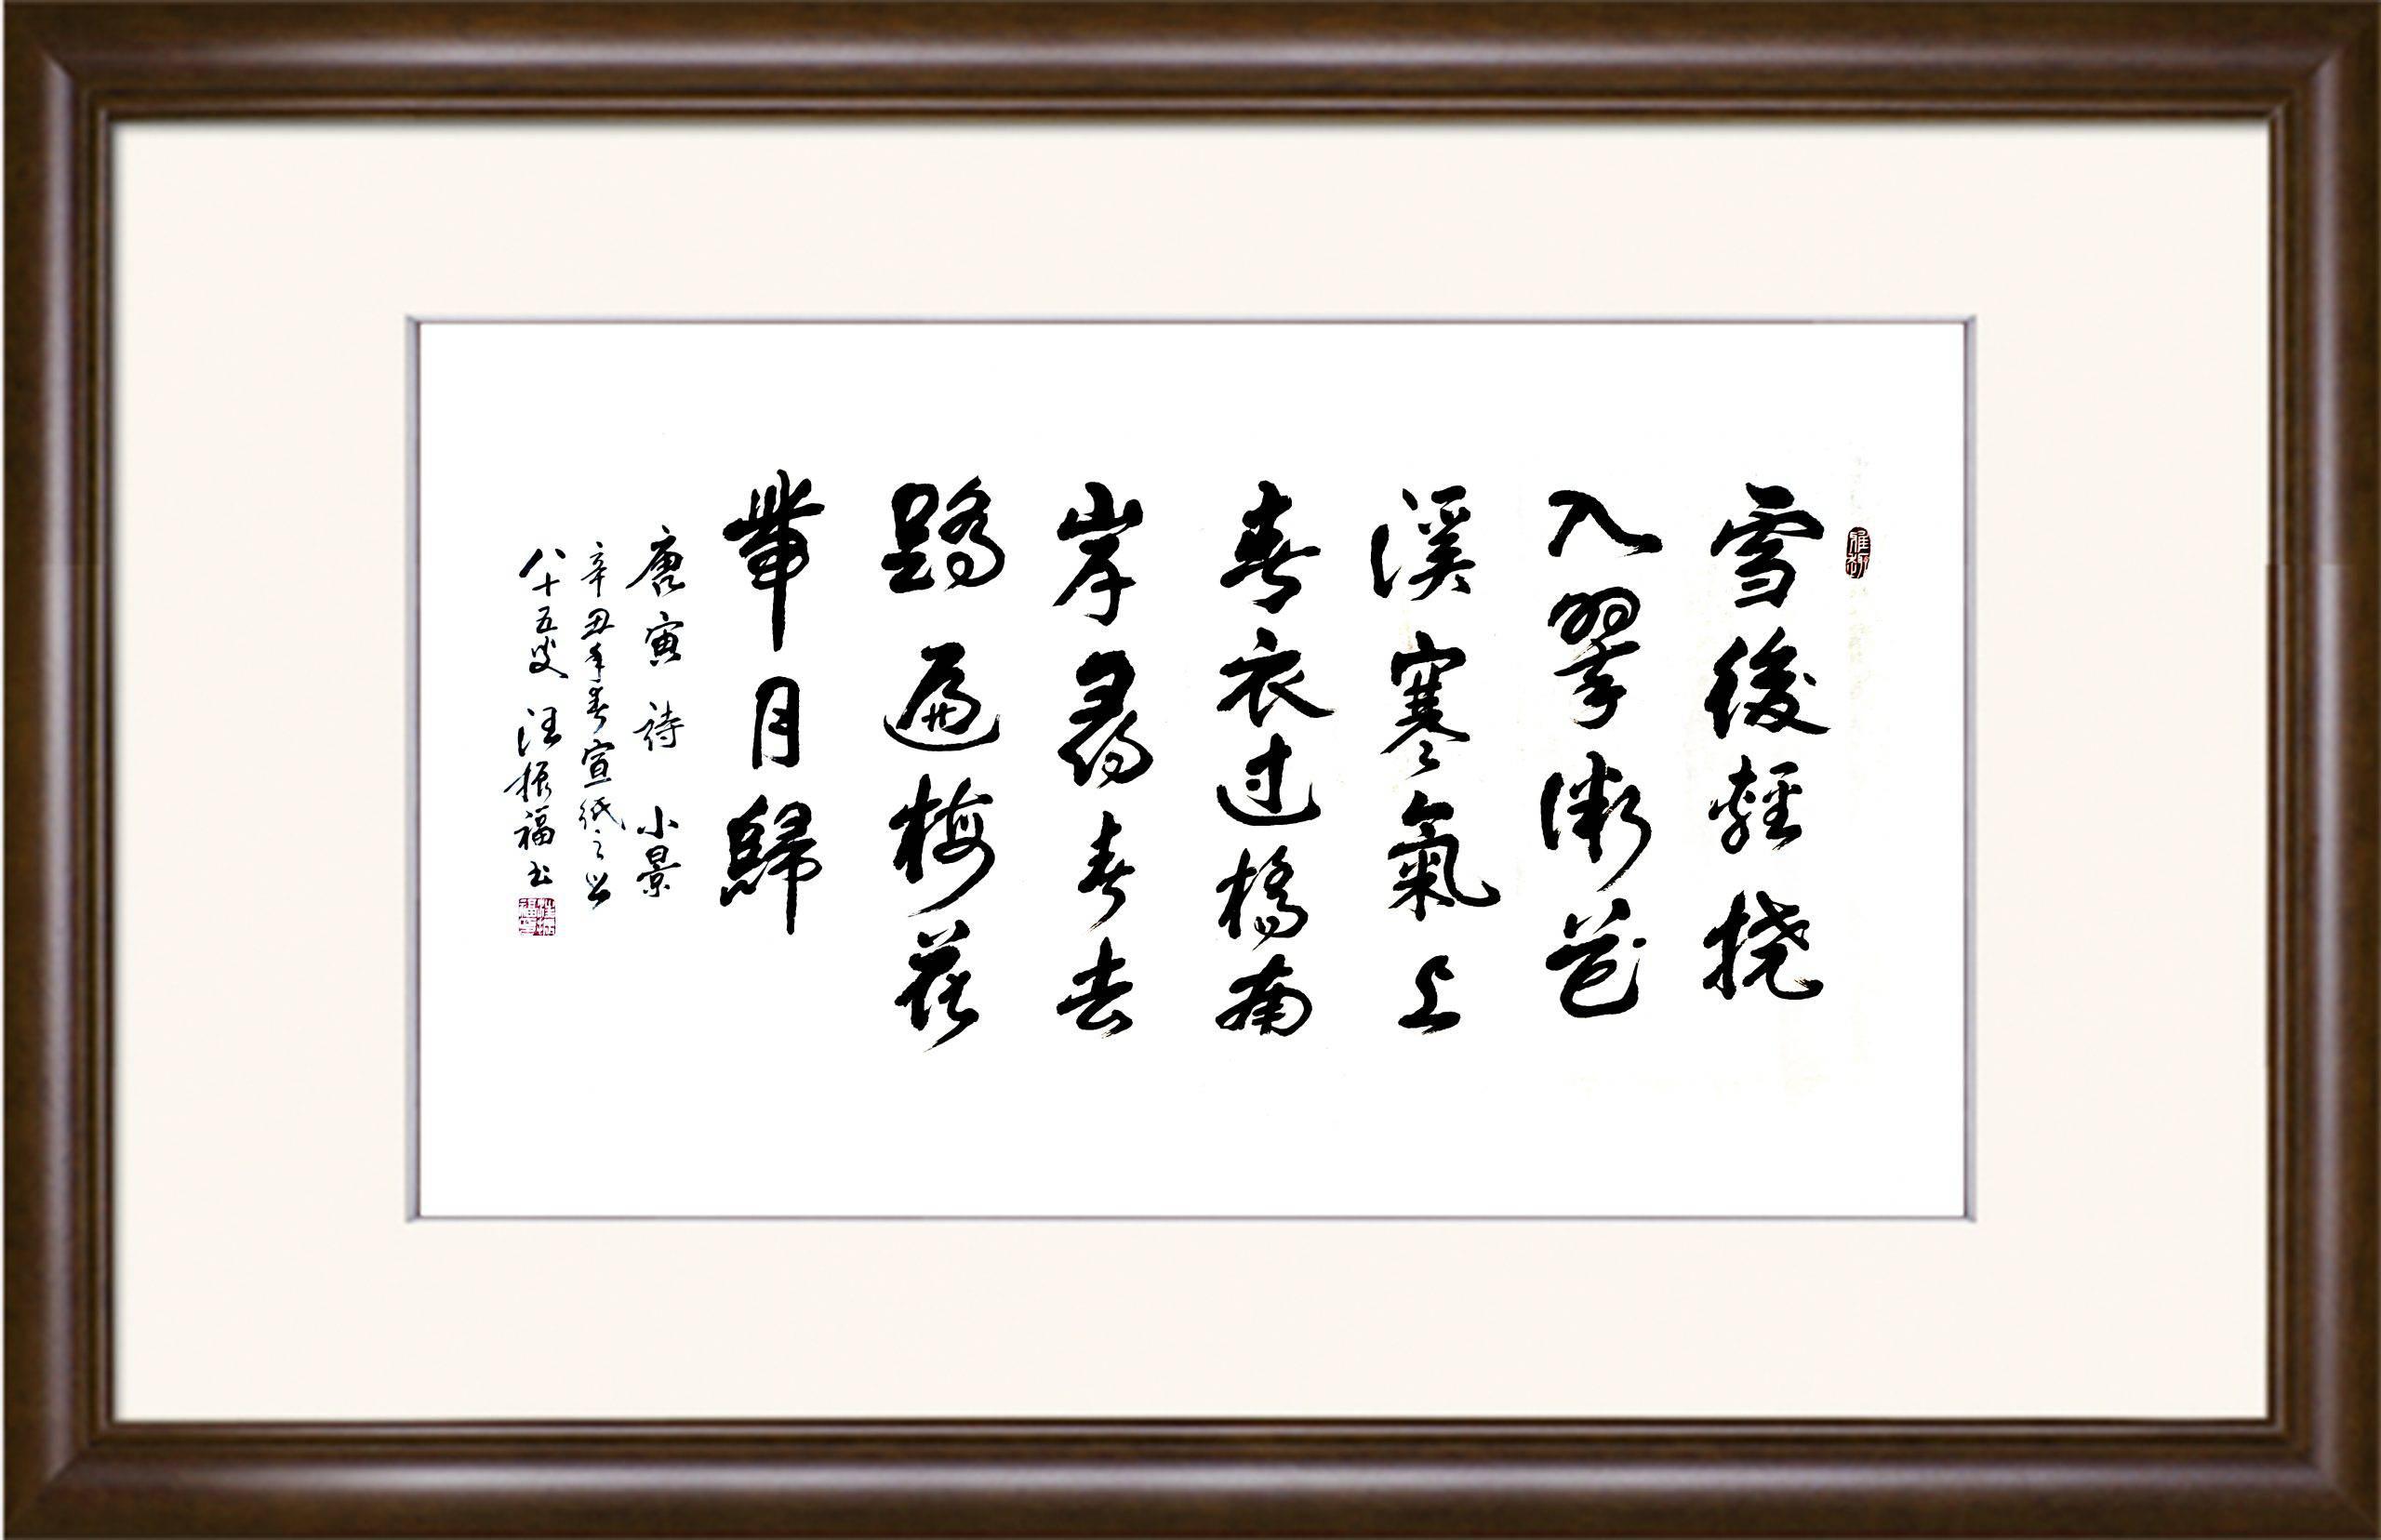 雪後輕橈
入翠微花
溪寒氣上
春衣过橋南
岸尋春去
蹻遍梅花
帶月歸
唐寅詩 小景
辛丑年春宣紙之乡
八十五叟 汪振福书
汪振福印